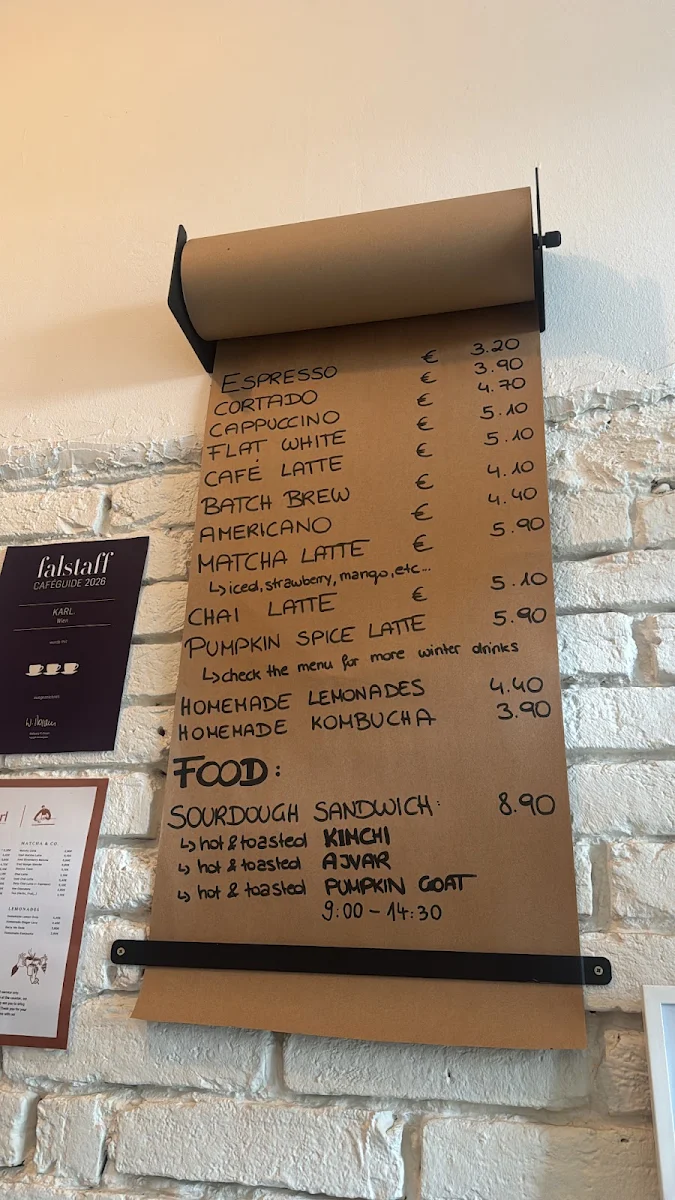 ESPRESSO € 3.20
CORTADO € 3.90
CAPPUCCINO € 4.70
FLAT WHITE € 5.10
CAFÉ LATTE € 5.10
BATCH BREW € 4.10
AMERICANO € 4.40
MATCHA LATTE € 5.90
↳ iced, strawberry, mango, etc...
CHAI LATTE € 5.10
PUMPKIN SPICE LATTE 5.90
↳ check the menu for more winter drinks
HOMEMADE LEMONADES 4.40
HOMEMADE KOMBUCHA 3.90
FOOD:
SOURDOUGH SANDWICH: 8.90
↳ hot & toasted KIMCHI
↳ hot & toasted AJVAR
↳ hot & toasted PUMPKIN GOAT
9:00 - 14:30
falstaff
CAFÉGUIDE 2026
KARL
Wien
MATCHA & CO
LEMONADES